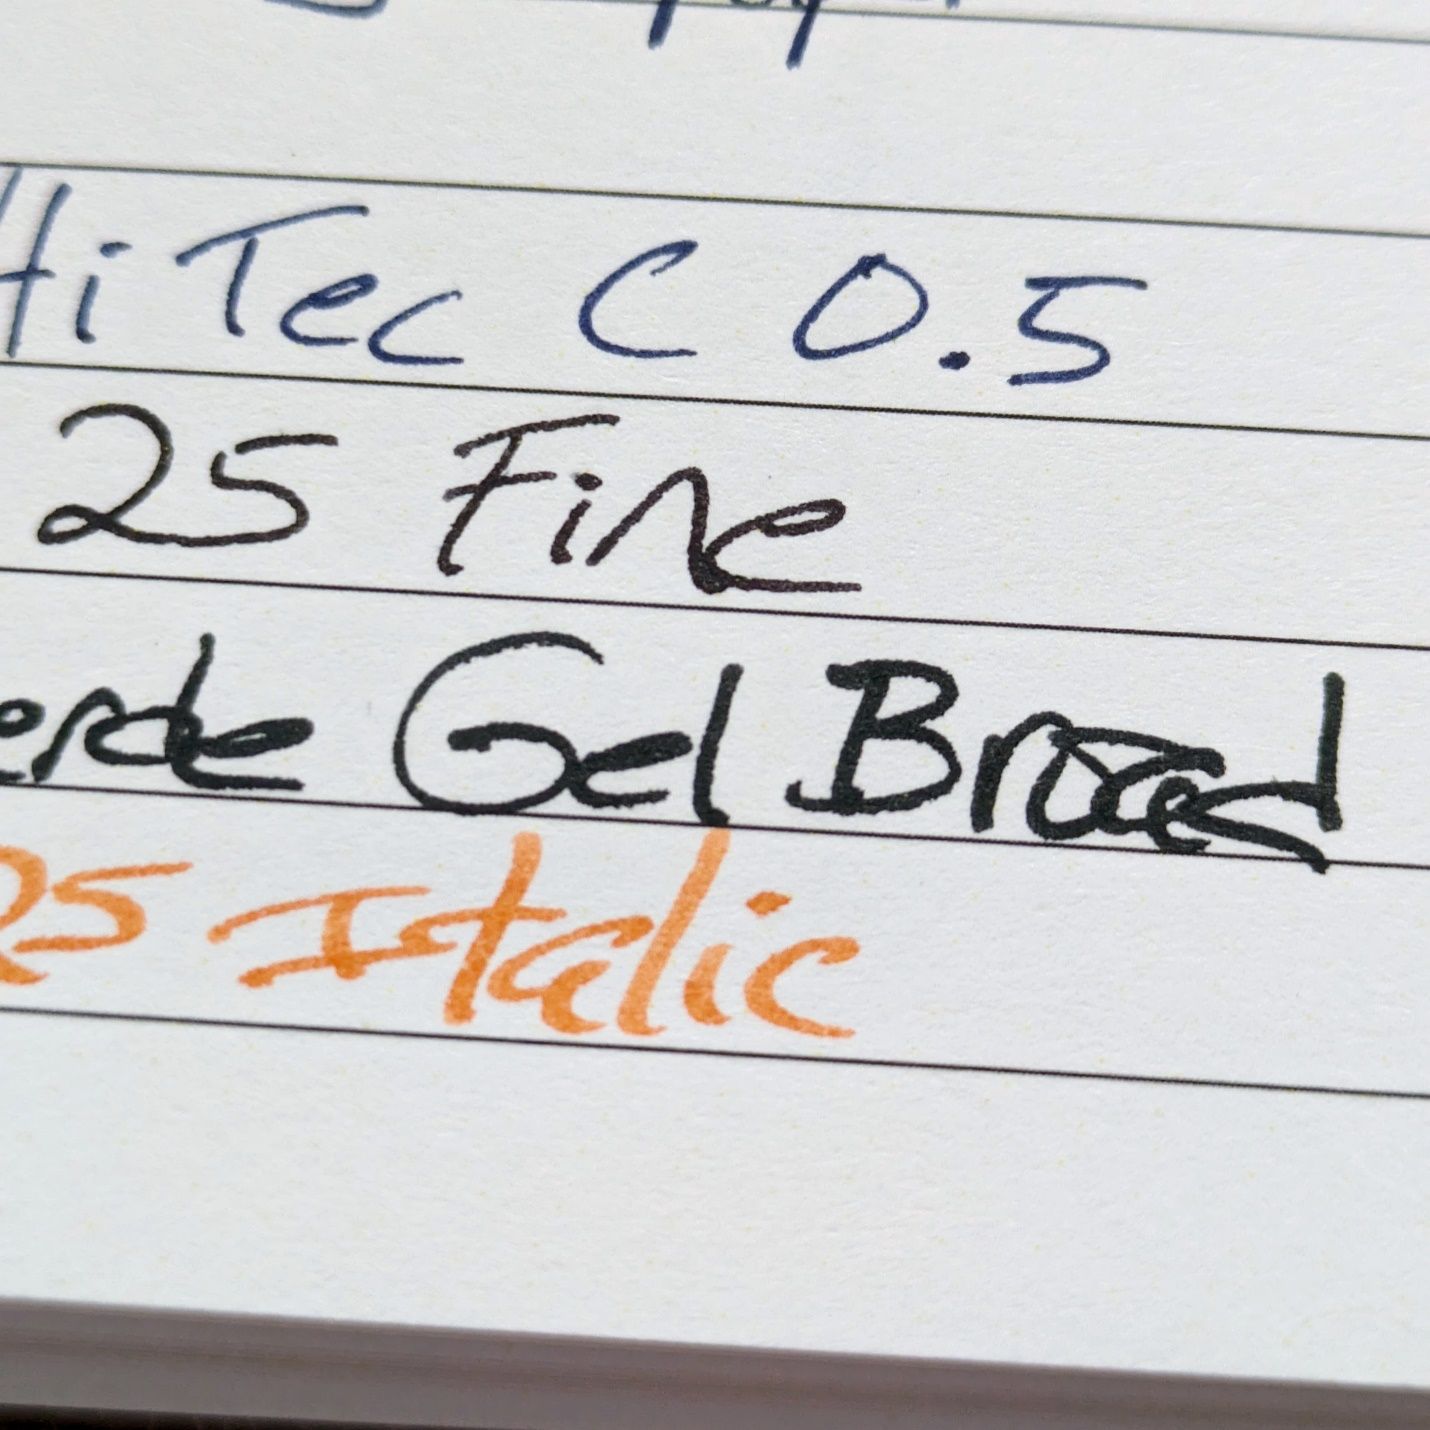 Hi Tec C 0.5
25 Fine
erde Gel Broad
25 Italic